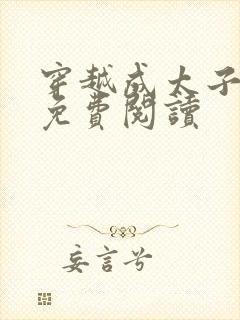 穿越成太子
免費閱讀
妄言兮